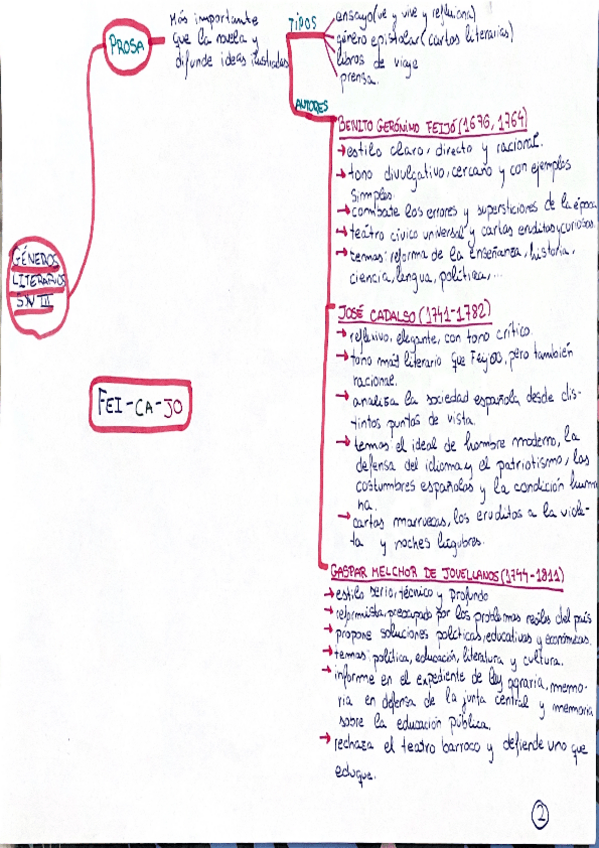 PROSA
Más importante
que la novela y
difunde ideas ilustradas
TIPOS
ensayo (ve y vive y reflexiona)
género epistolar (cartas literarias)
libros de viaje
prensa.
AUTORES
BENITO GERÓNIMO FEIJÓ (1676, 1764)
→ estilo claro, directo y racional.
→ tono divulgativo, cercano y con ejemplos
simples.
→ combate los errores y supersticiones de la época
→ teatro cívico universal y cartas eruditas y curiosas.
→ temas: reforma de la enseñanza, historia,
ciencia, lengua, política,...
GÉNEROS
LITERARIOS
S.XVIII
FEI-CA-JO
JOSÉ CADALSO (1741-1782)
→ reflexivo, elegante, con tono crítico.
→ tono más literario que Feijoo, pero también
racional.
→ analiza la sociedad española desde dis-
tintos puntos de vista.
→ temas el ideal de hombre moderno, la
defensa del idioma y el patriotismo, las
costumbres españolas y la condición huma
na.
→ cartas marruecas, los eruditos a la viole-
ta y noches lúgubres.
GASPAR MELCHOR DE JOVELLANOS (1744-1811)
→ estilo serio, técnico y profundo
→ reformista, preocupado por los problemas reales del país
→ propone soluciones políticas, educativas y económicas.
→ temas: política, educación, literatura y cultura.
→ informe en el expediente de ley agraria, memo-
ria en defensa de la junta central y memoria
sobre la educación pública.
→ rechaza el teatro barroco y defiende uno que
eduque.
2